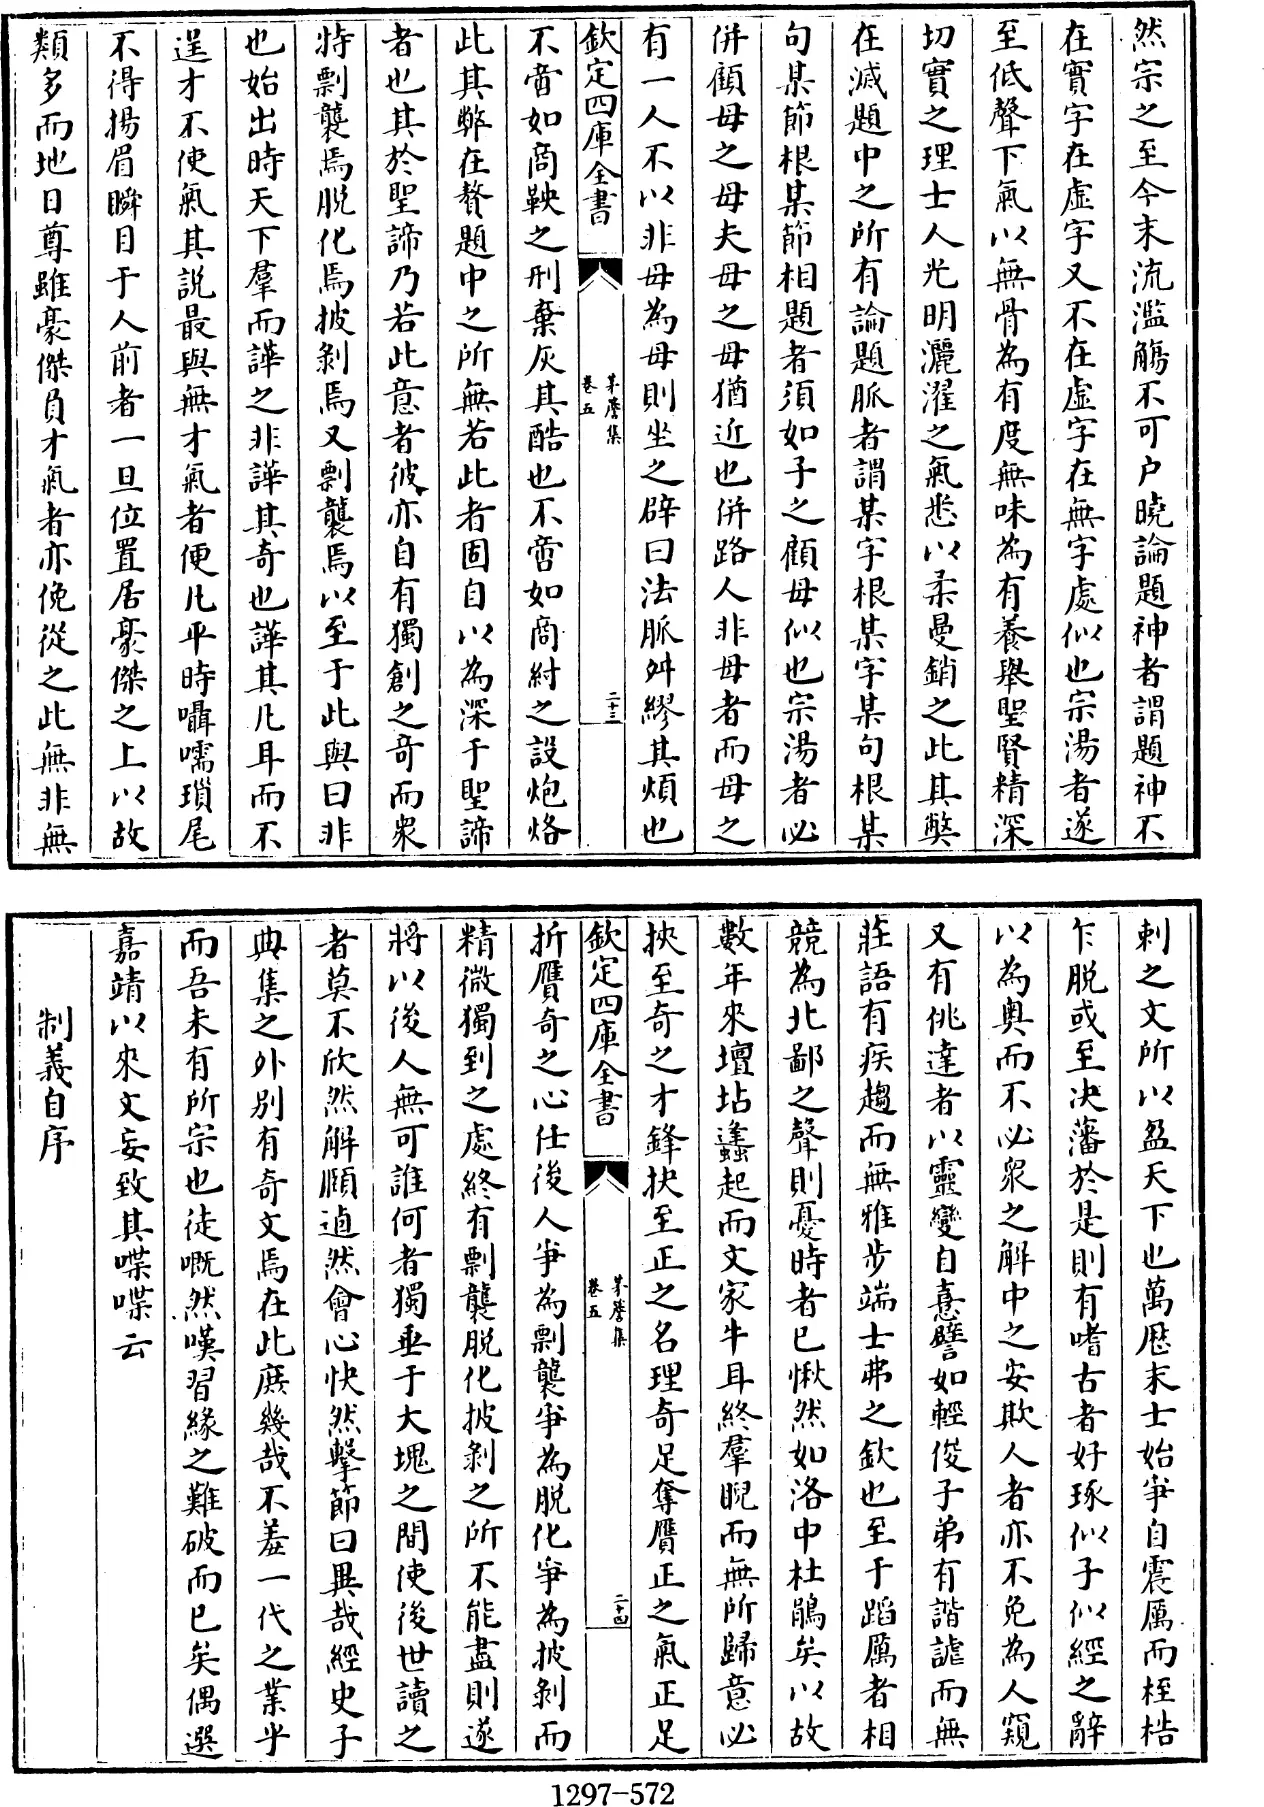 然宗之至今末流濫觴不可户曉論題神者謂題神不
在實字在虛字又不在虛字在無字處似也宗湯者遂
至低聲下氣以無骨為有度無味為有養舉聖賢精深
切實之理士人光明灑濯之氣悉以柔曼銷之此其弊
在滅題中之所有論題脈者謂某字根某字某句根某
句某節根某節相題者須如子之顧母似也宗湯者必
併顧母之母夫母之母猶近也併路人非母者而母之
有一人不以非母為母則坐之辟曰法脈舛繆其煩也
欽定四庫全書
茅簷集
卷五
二十三
不啻如商鞅之刑棄灰其酷也不啻如商紂之設炮烙
此其弊在贅題中之所無若此者固自以為深于聖諦
者也其於聖諦乃若此意者彼亦自有獨創之奇而衆
特剽襲焉脫化焉披剝焉又剽襲焉以至于此與曰非
也始出時天下羣而譁之非譁其奇也譁其凡耳而不
逞才不使氣其説最與無才氣者便凡平時囁嚅瑣尾
不得揚眉瞬目于人前者一旦位置居豪傑之上以故
類多而地日尊雖豪傑負才氣者亦俛從之此無非無
刺之文所以盈天下也萬厯末士始爭自震厲而桎梏
乍脫或至决藩於是則有嗜古者好琢似子似經之辭
以為奥而不必衆之解中之安欺人者亦不免為人窺
又有佻達者以靈變自憙譬如輕俊子弟有諧謔而無
莊語有疾趨而無雅步端士弗之欽也至于蹈厲者相
競為北鄙之聲則憂時者已愀然如洛中杜鵑矣以故
數年來壇坫蠭起而文家牛耳終羣睨而無所歸意必
挾至奇之才鋒抉至正之名理奇足奪贋正之氣正足
欽定四庫全書
茅簷集
卷五
二十四
折贋奇之心仕後人爭為剽襲爭為脫化爭為披剝而
精微獨到之處終有剽襲脫化披剝之所不能盡則遂
將以後人無可誰何者獨垂于大塊之間使後世讀之
者莫不欣然解頤逌然會心快然擊節曰異哉經史子
典集之外别有奇文焉在此庶幾哉不羞一代之業乎
而吾未有所宗也徒嘅然嘆習緣之難破而已矣偶選
嘉靖以來文妄致其喋喋云
制義自序
1297-572